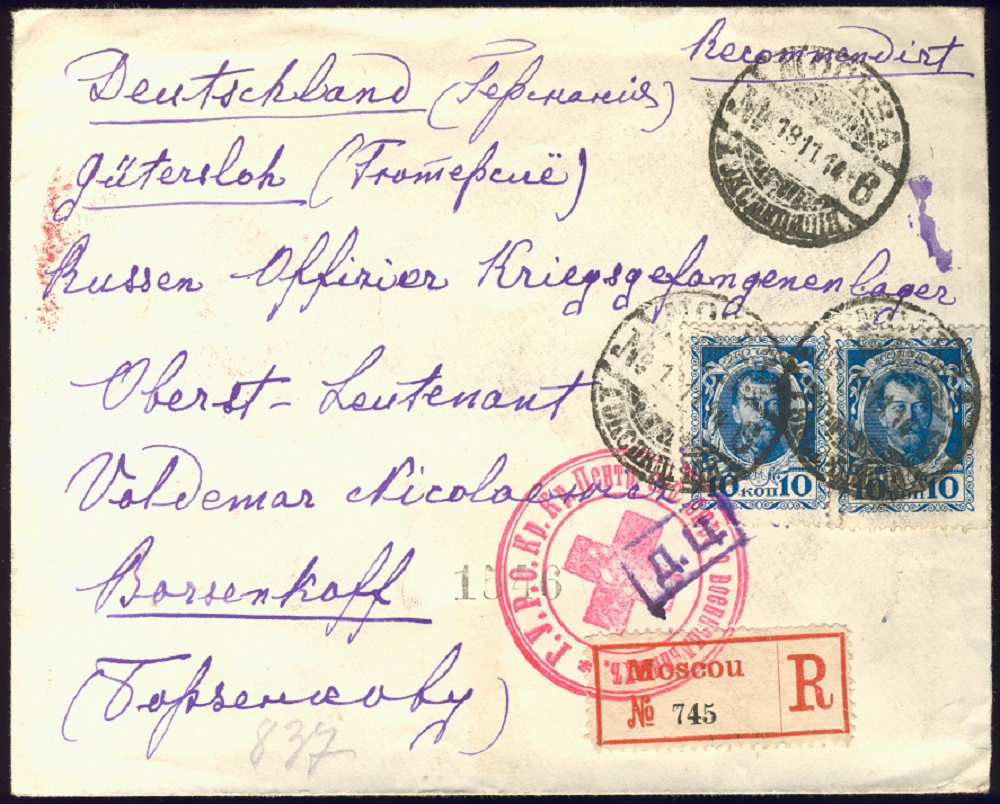 Recommendirt
Deutschland (Германія)
Gütersloh (Гютерсле)
МОСКВА
18 11 14
6
ЭКСПЕДИЦІЯ
Russen Offizier Kriegsgefangenenlager
Oberst-Leutenant
10 КОП 10
10 КОП 10
Voldemar
Г.У.Р.О. Кр. Кр.
Д.Ц.
Borsenkoff
1546
(Борзенкову)
Moscou
№ 745
R
837